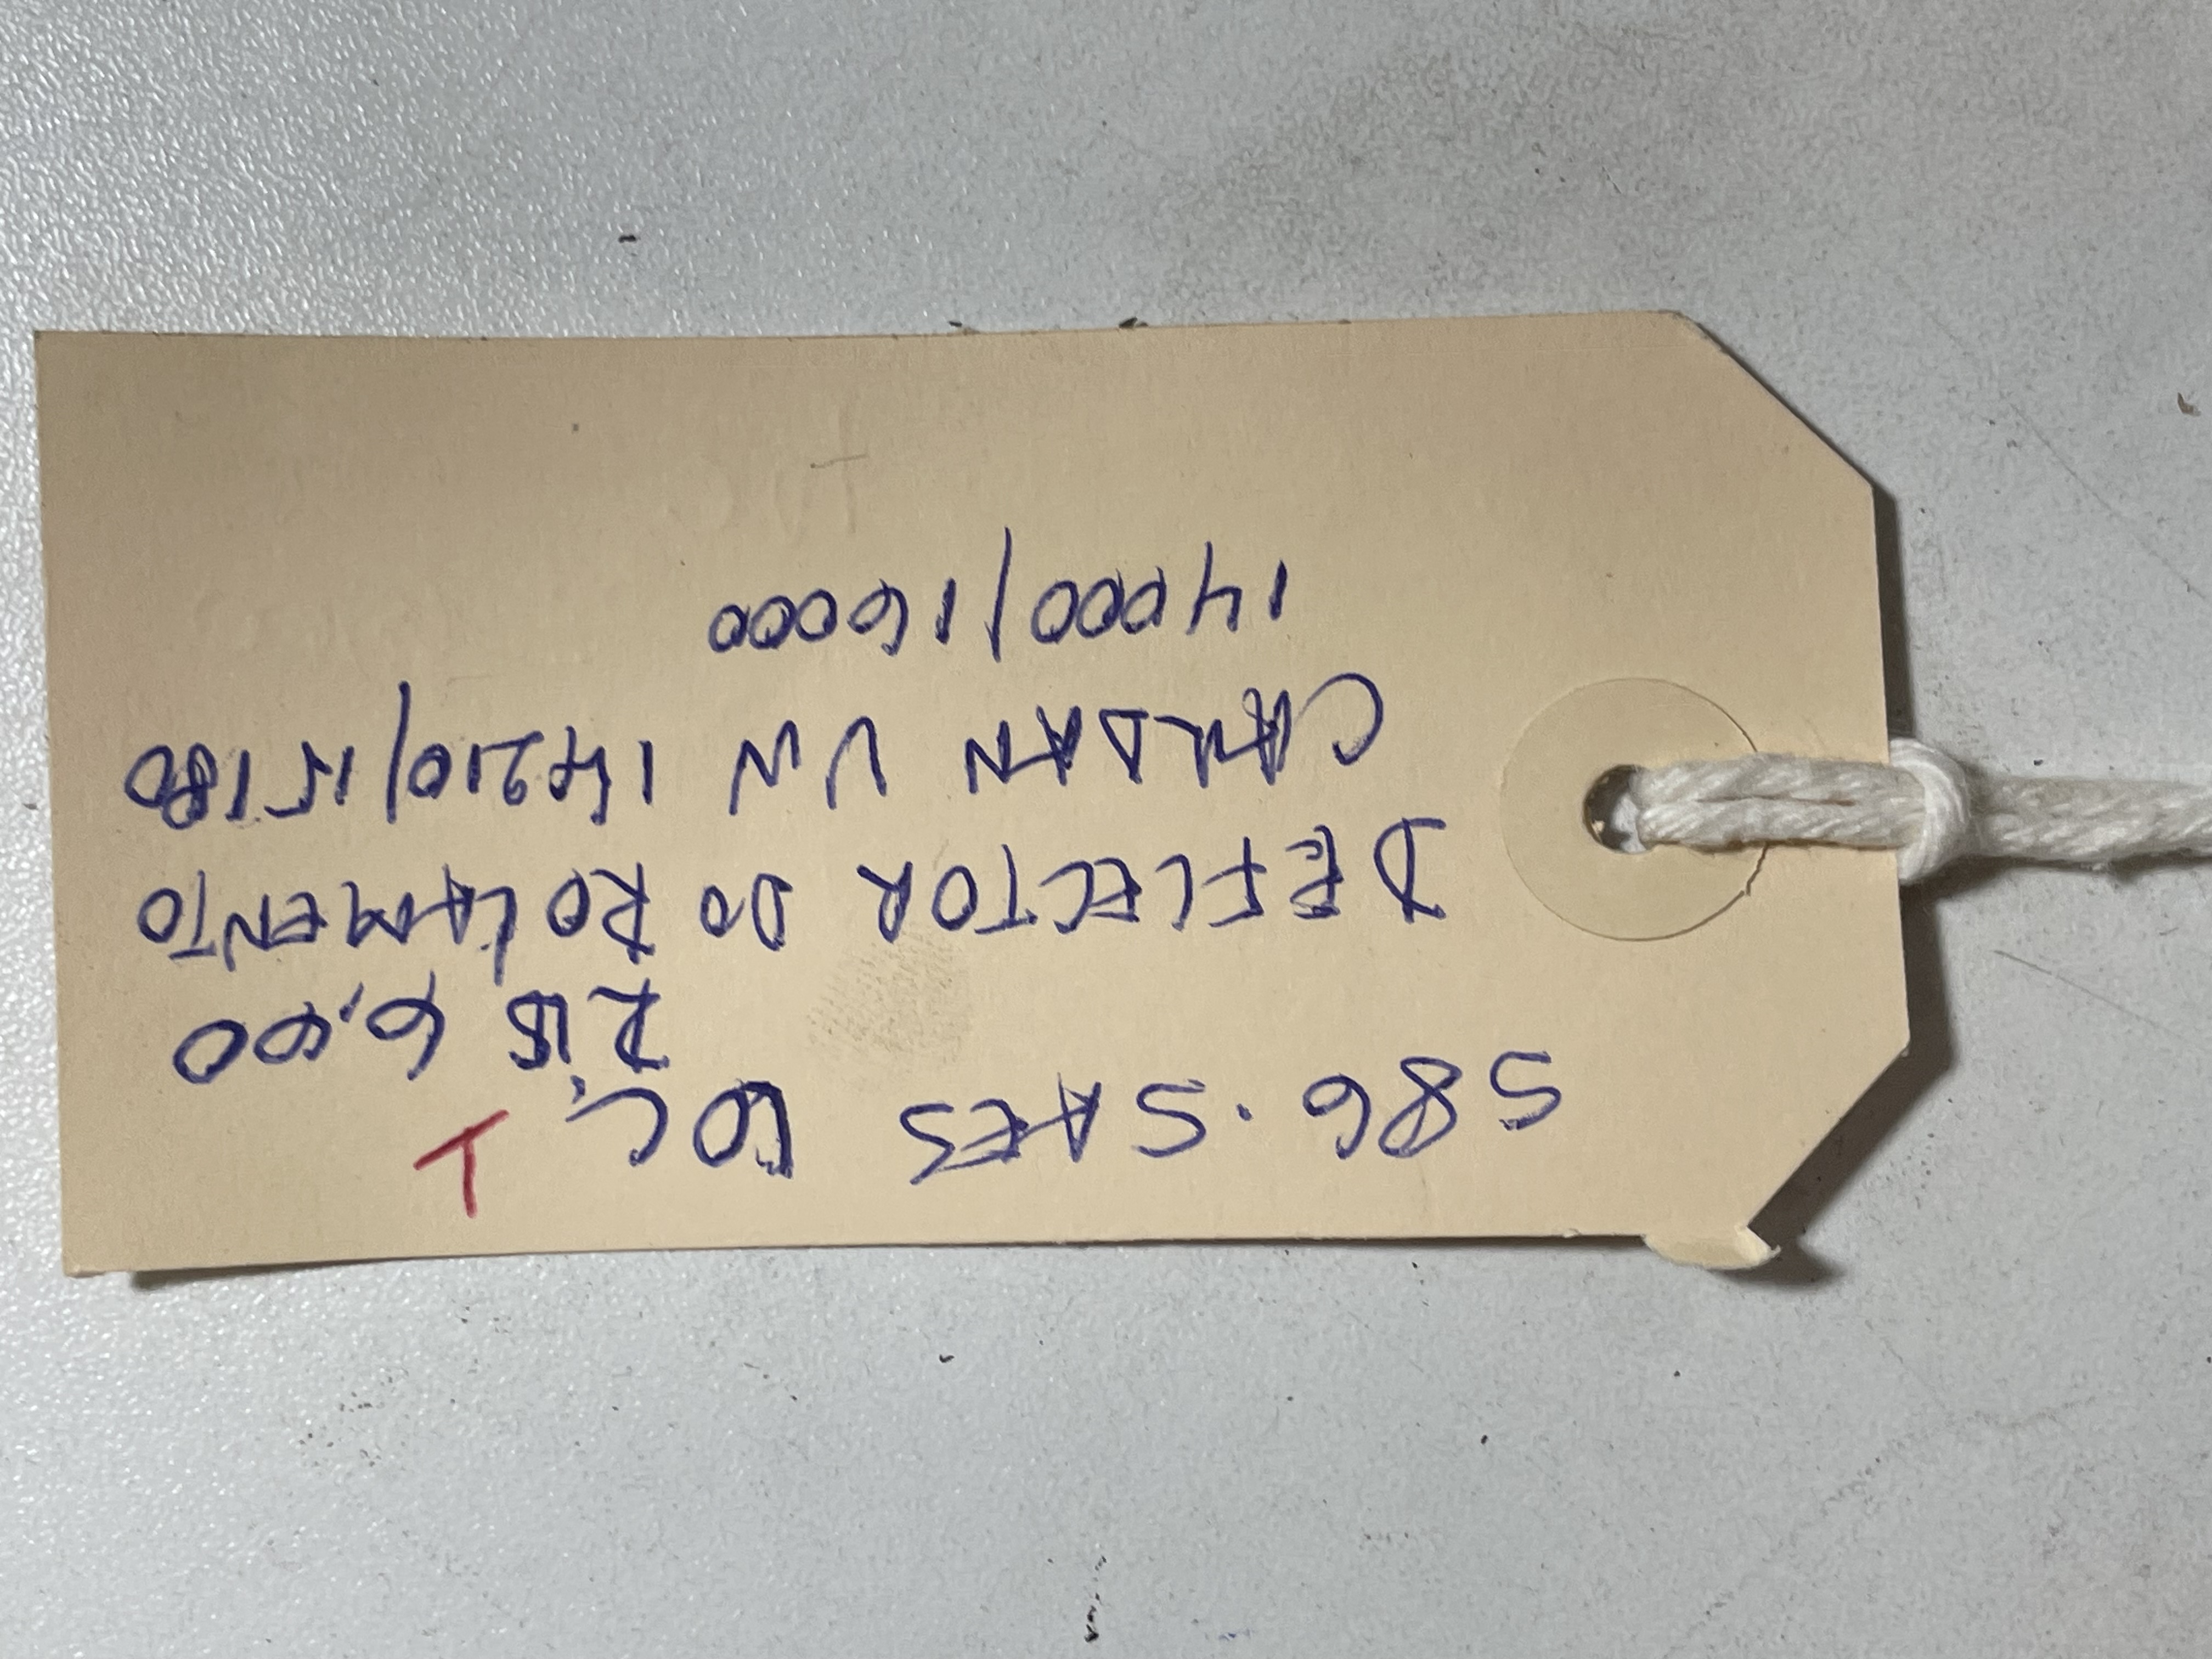 S86.SAES 10C. T
R15 6,00
DEFLECTOR DO ROLAMENTO
CARDAN VW 14210/15180
14000/16000